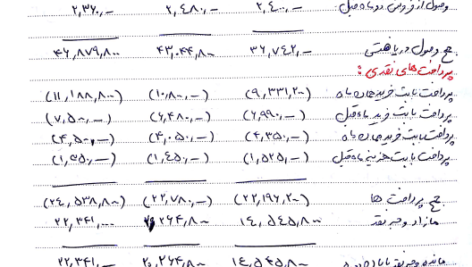 وصول از فروش دو ماه قبل ۲,۴۰۰,– ۲,۴۸۰,– ۲,۳۶۰,–
جمع وصول دریافتی ۳۶,۷۴۲,– ۴۳,۰۴۴,۸۰ ۴۶,۸۷۹,۸۰۰
پرداخت های نقدی :
پرداخت بابت خرید همان ماه (۹,۳۳۱,۲۰) (۱۰,۸۰۰,–) (۱۱,۱۸۸,۸۰۰)
پرداخت بابت خرید ماه قبل (۶,۹۹۰,–) (۶,۴۸۰,–) (۷,۵۰۰,–)
پرداخت بابت خرید همان ماه (۴,۳۵۰,–) (۴,۰۵۰,–) (۴,۵۰۰,–)
پرداخت بابت هزینه ماه قبل (۱,۵۲۵,–) (۱,۴۵۰,–) (۱,۳۵۰,–)
جمع پرداخت ها (۲۲,۱۹۶,۲۰) (۲۲,۷۸۰,–) (۲۴,۵۳۸,۸۰)
مازاد وجه نقد ۱۴,۵۴۵,۸۰۰ ۲۰,۲۶۴,۸۰ ۲۲,۳۴۱,۰۰۰
مانده وجه نقد ۱۴,۵۴۵,۸۰ ۲۰,۲۶۴,۸۰ ۲۲,۳۴۱,–